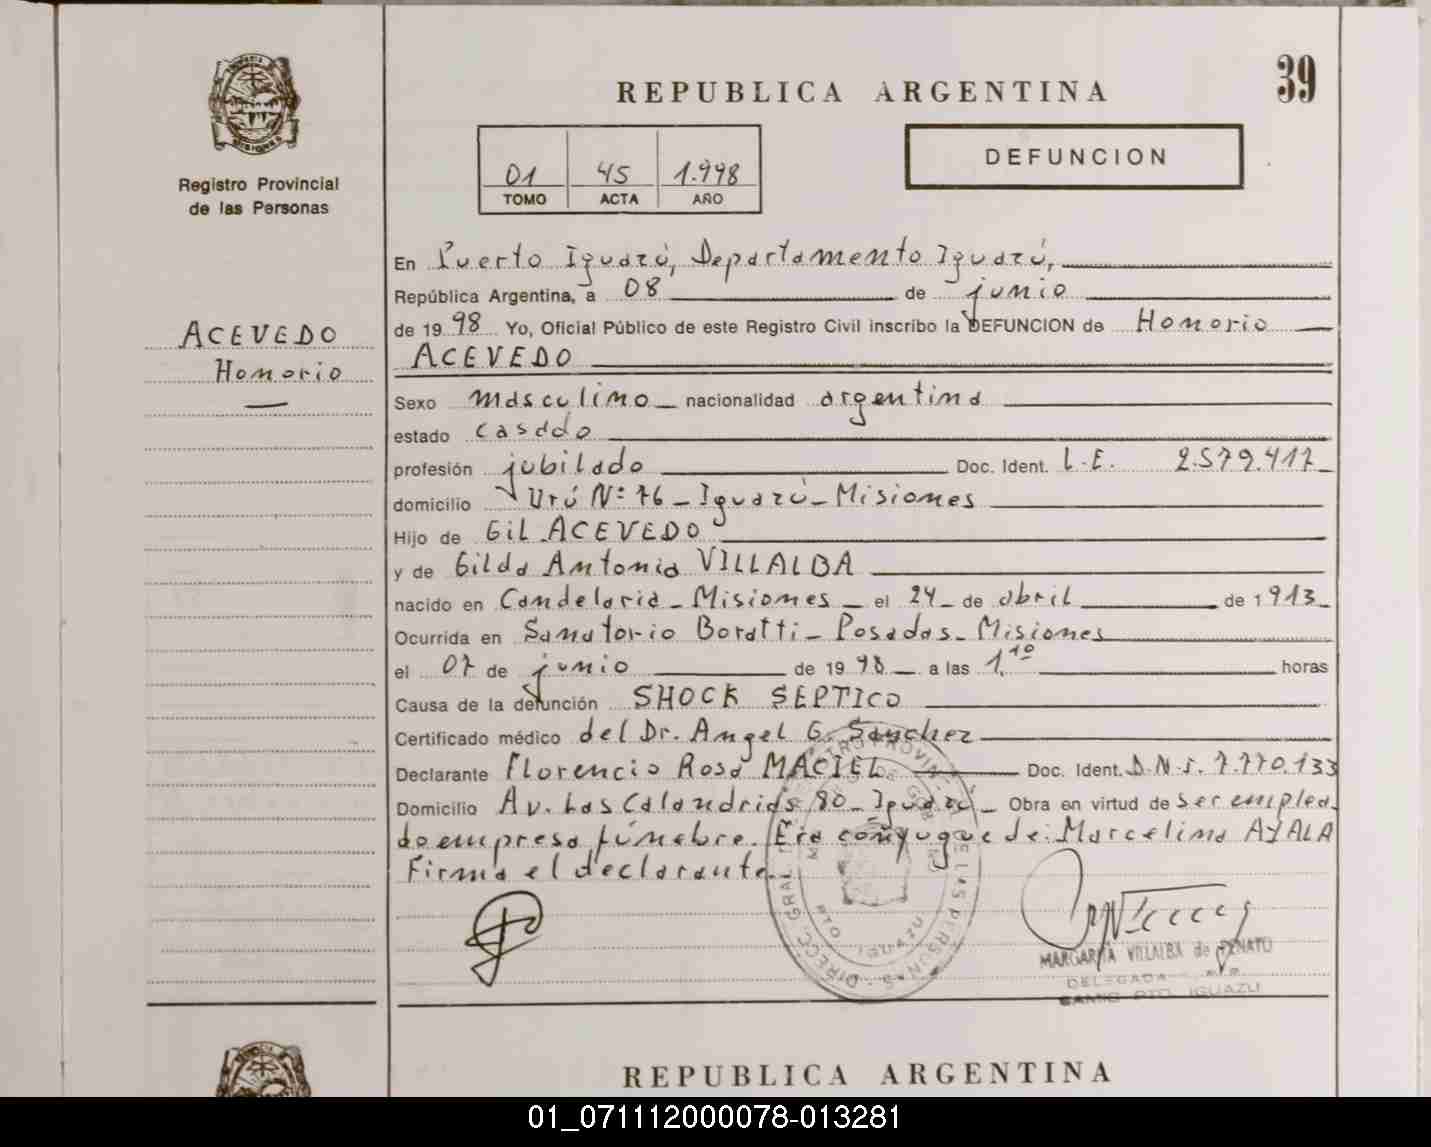 39
REPUBLICA ARGENTINA
DEFUNCION
01 45 1.998
TOMO ACTA AÑO
Registro Provincial
de las Personas
ACEVEDO
Honorio
En Puerto Iguazú, Departamento Iguazú,
República Argentina, a 08 de junio
de 19 98 Yo, Oficial Público de este Registro Civil inscribo la DEFUNCION de Honorio
ACEVEDO
Sexo masculino nacionalidad argentina
estado casado
profesión jubilado Doc. Ident. L.E. 2.579.417
domicilio Urú Nº 76 - Iguazú - Misiones
Hijo de Gil ACEVEDO
y de Gilda Antonia VILLALBA
nacido en Candelaria - Misiones - el 24 de abril de 1 913
Ocurrida en Sanatorio Boratti - Posadas - Misiones
el 07 de junio de 19 98 a las 1,10 horas
Causa de la defunción SHOCK SEPTICO
Certificado médico del Dr. Angel G. Sanchez
Declarante Florencio Rosa MACIEL Doc. Ident. D.N.I. 7.770.133
Domicilio Av. Las Calandrias 80 - Iguazú - Obra en virtud de ser emplea
do empresa fúnebre. Era cónyugue de: Marcelina AYALA
Firma el declarante.
MARGARITA VILLALBA de
DELEGADA
PTO. IGUAZU
REPUBLICA ARGENTINA
01_071112000078-013281